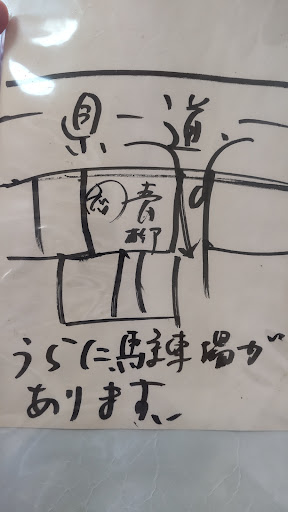 県道
青柳
うらに駐車場が
あります、